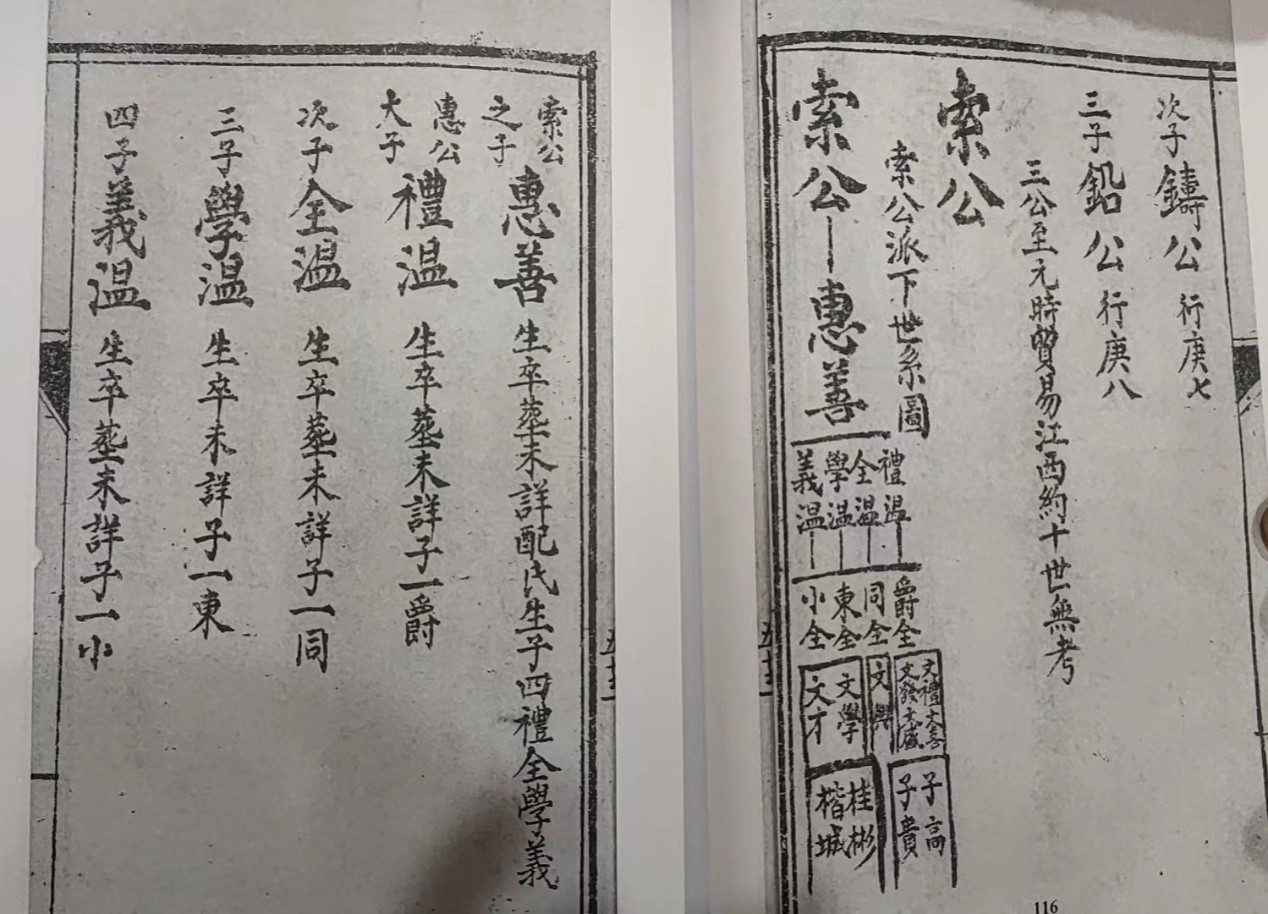 次子鑄公行庚七
三子鉛公行庚八
三公至元時貿易江西約十世無考
索公
索公派下世系圖
索公—惠善
禮温
全温
學温
義温
爵全
同全
東全
小全
文禮文喜
文發文盛
文興
文學
文才
子高
子貴
桂彬
楷城
116
索公
之子
惠善生卒塟未詳配氏生子四禮全學義
惠公
大子
禮温生卒塟未詳子一爵
次子全温生卒塟未詳子一同
三子學温生卒未詳子一東
四子義温生卒塟未詳子一小